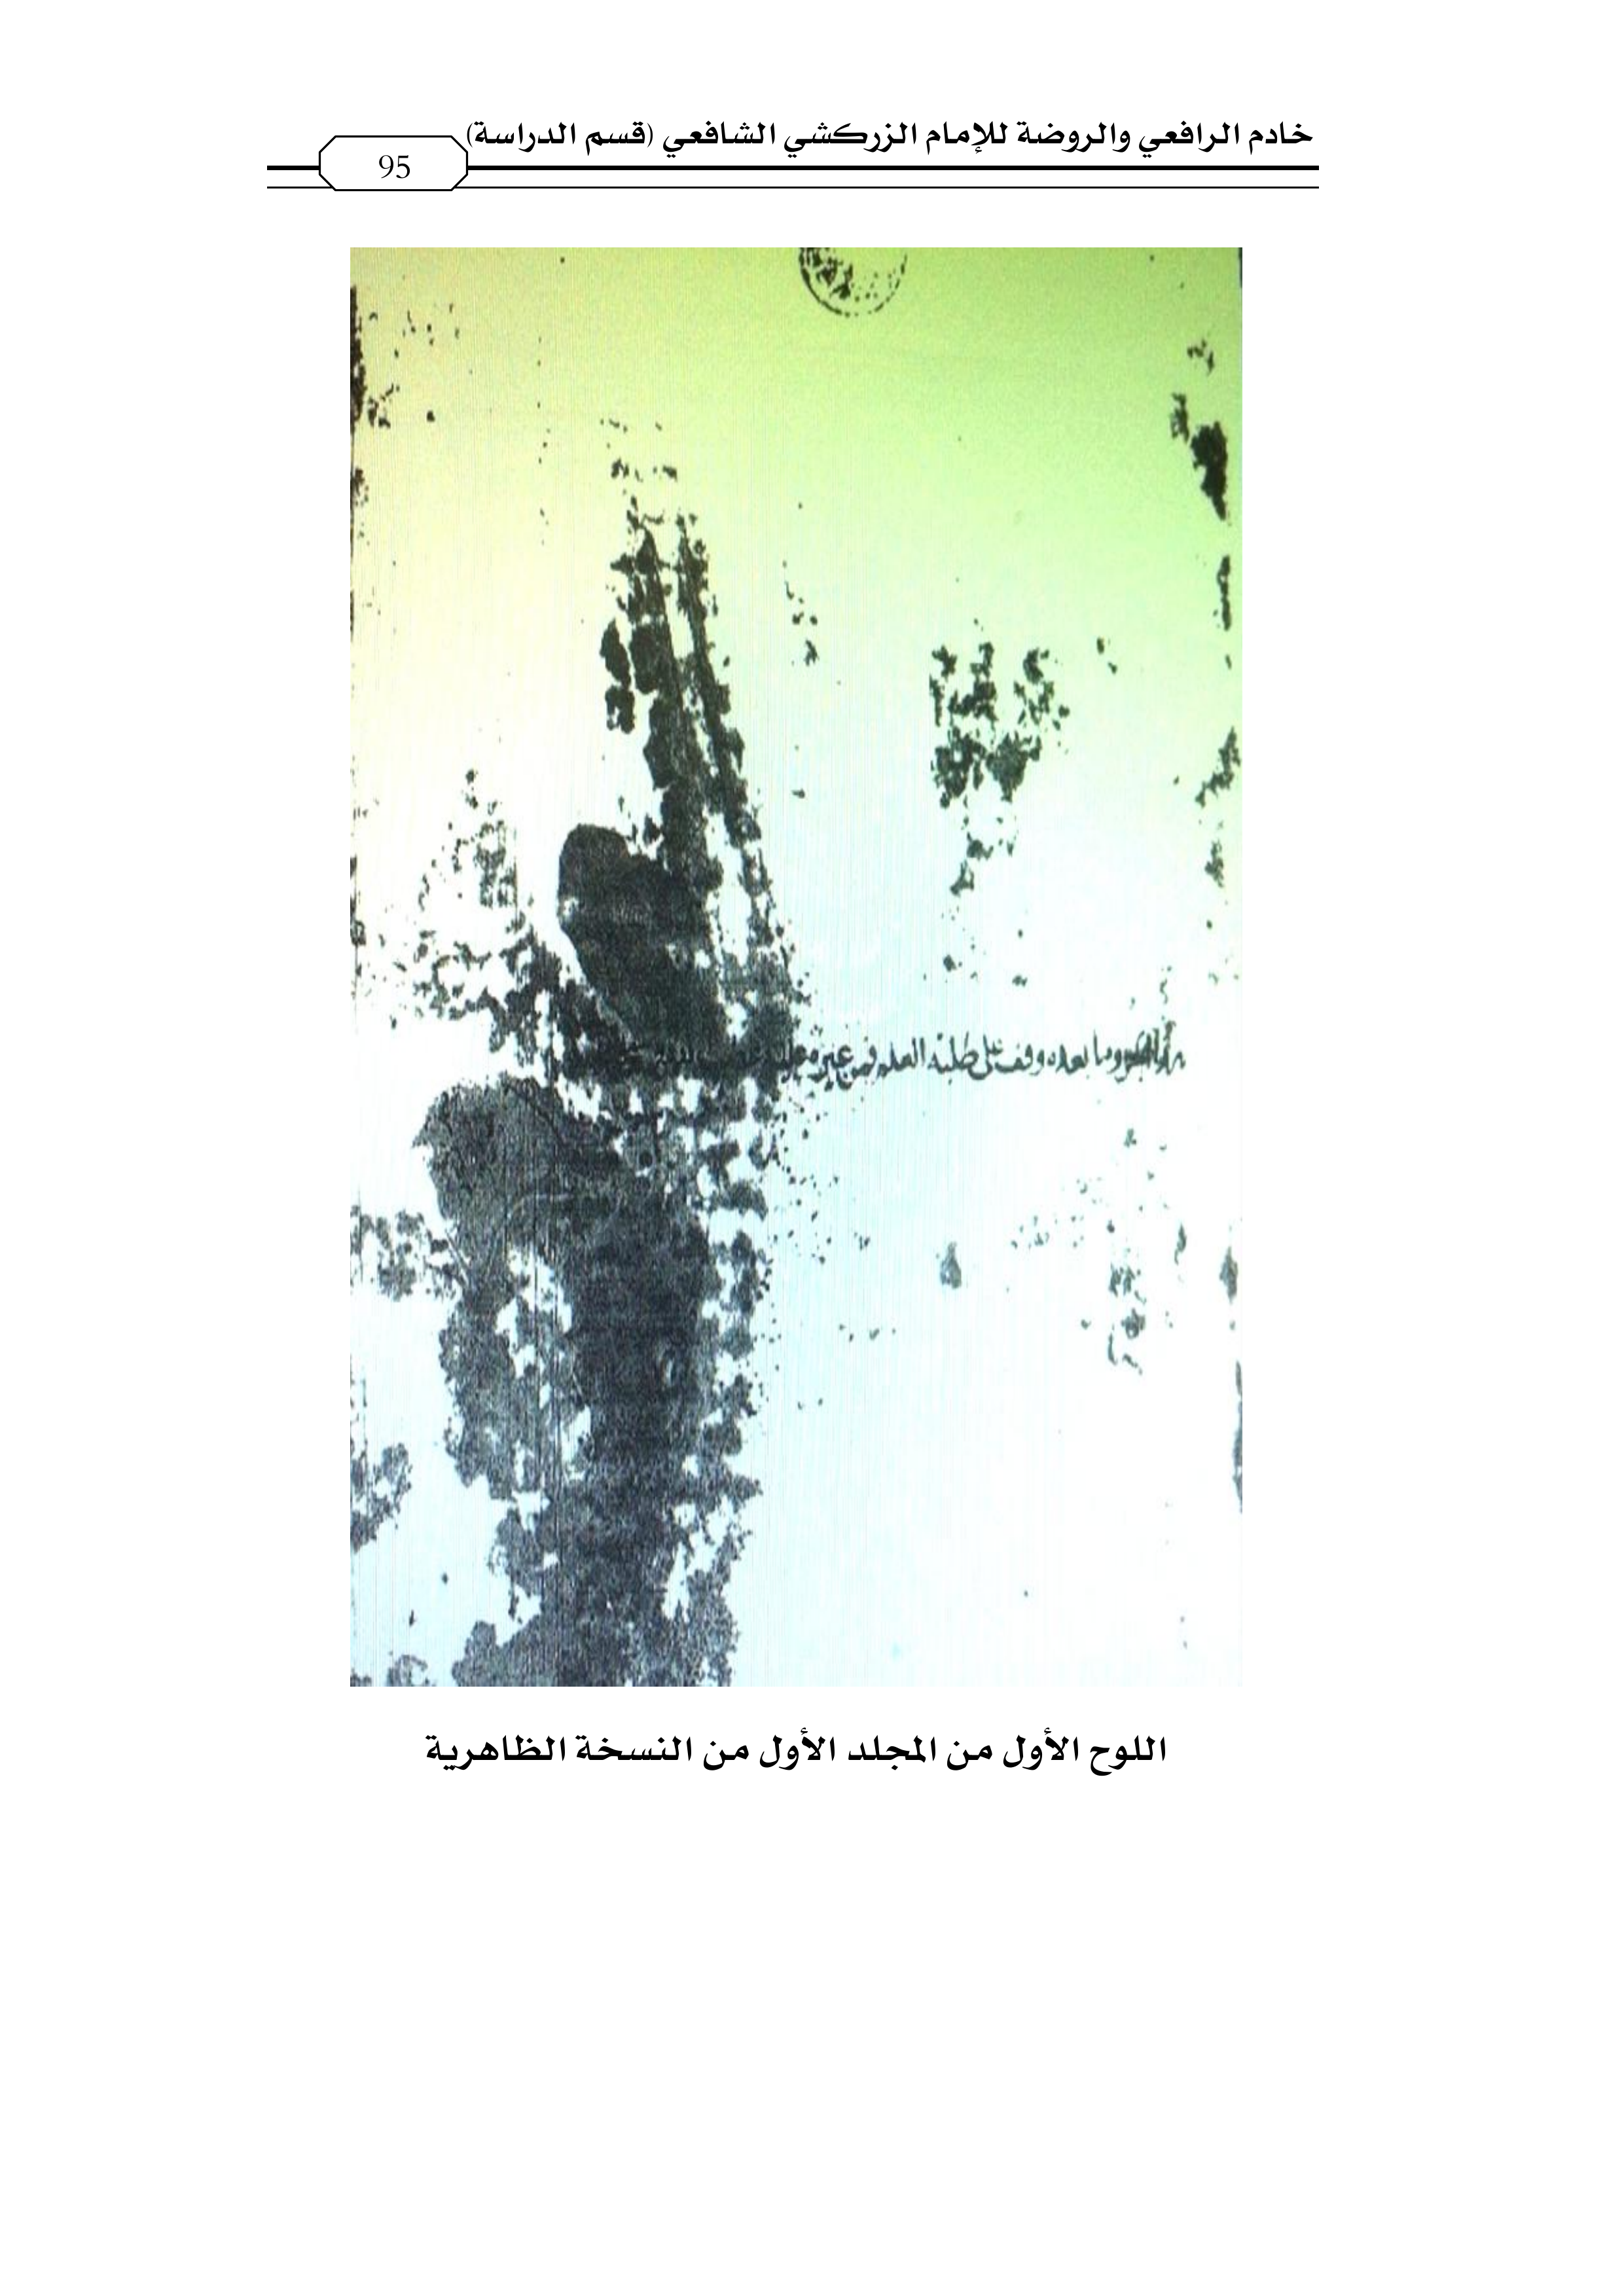 خادم الرافعي والروضة للإمام الزركشي الشافعي (قسم الدراسة)
95
وما بعده وقف على طلبة العلم
اللوح الأول من المجلد الأول من النسخة الظاهرية